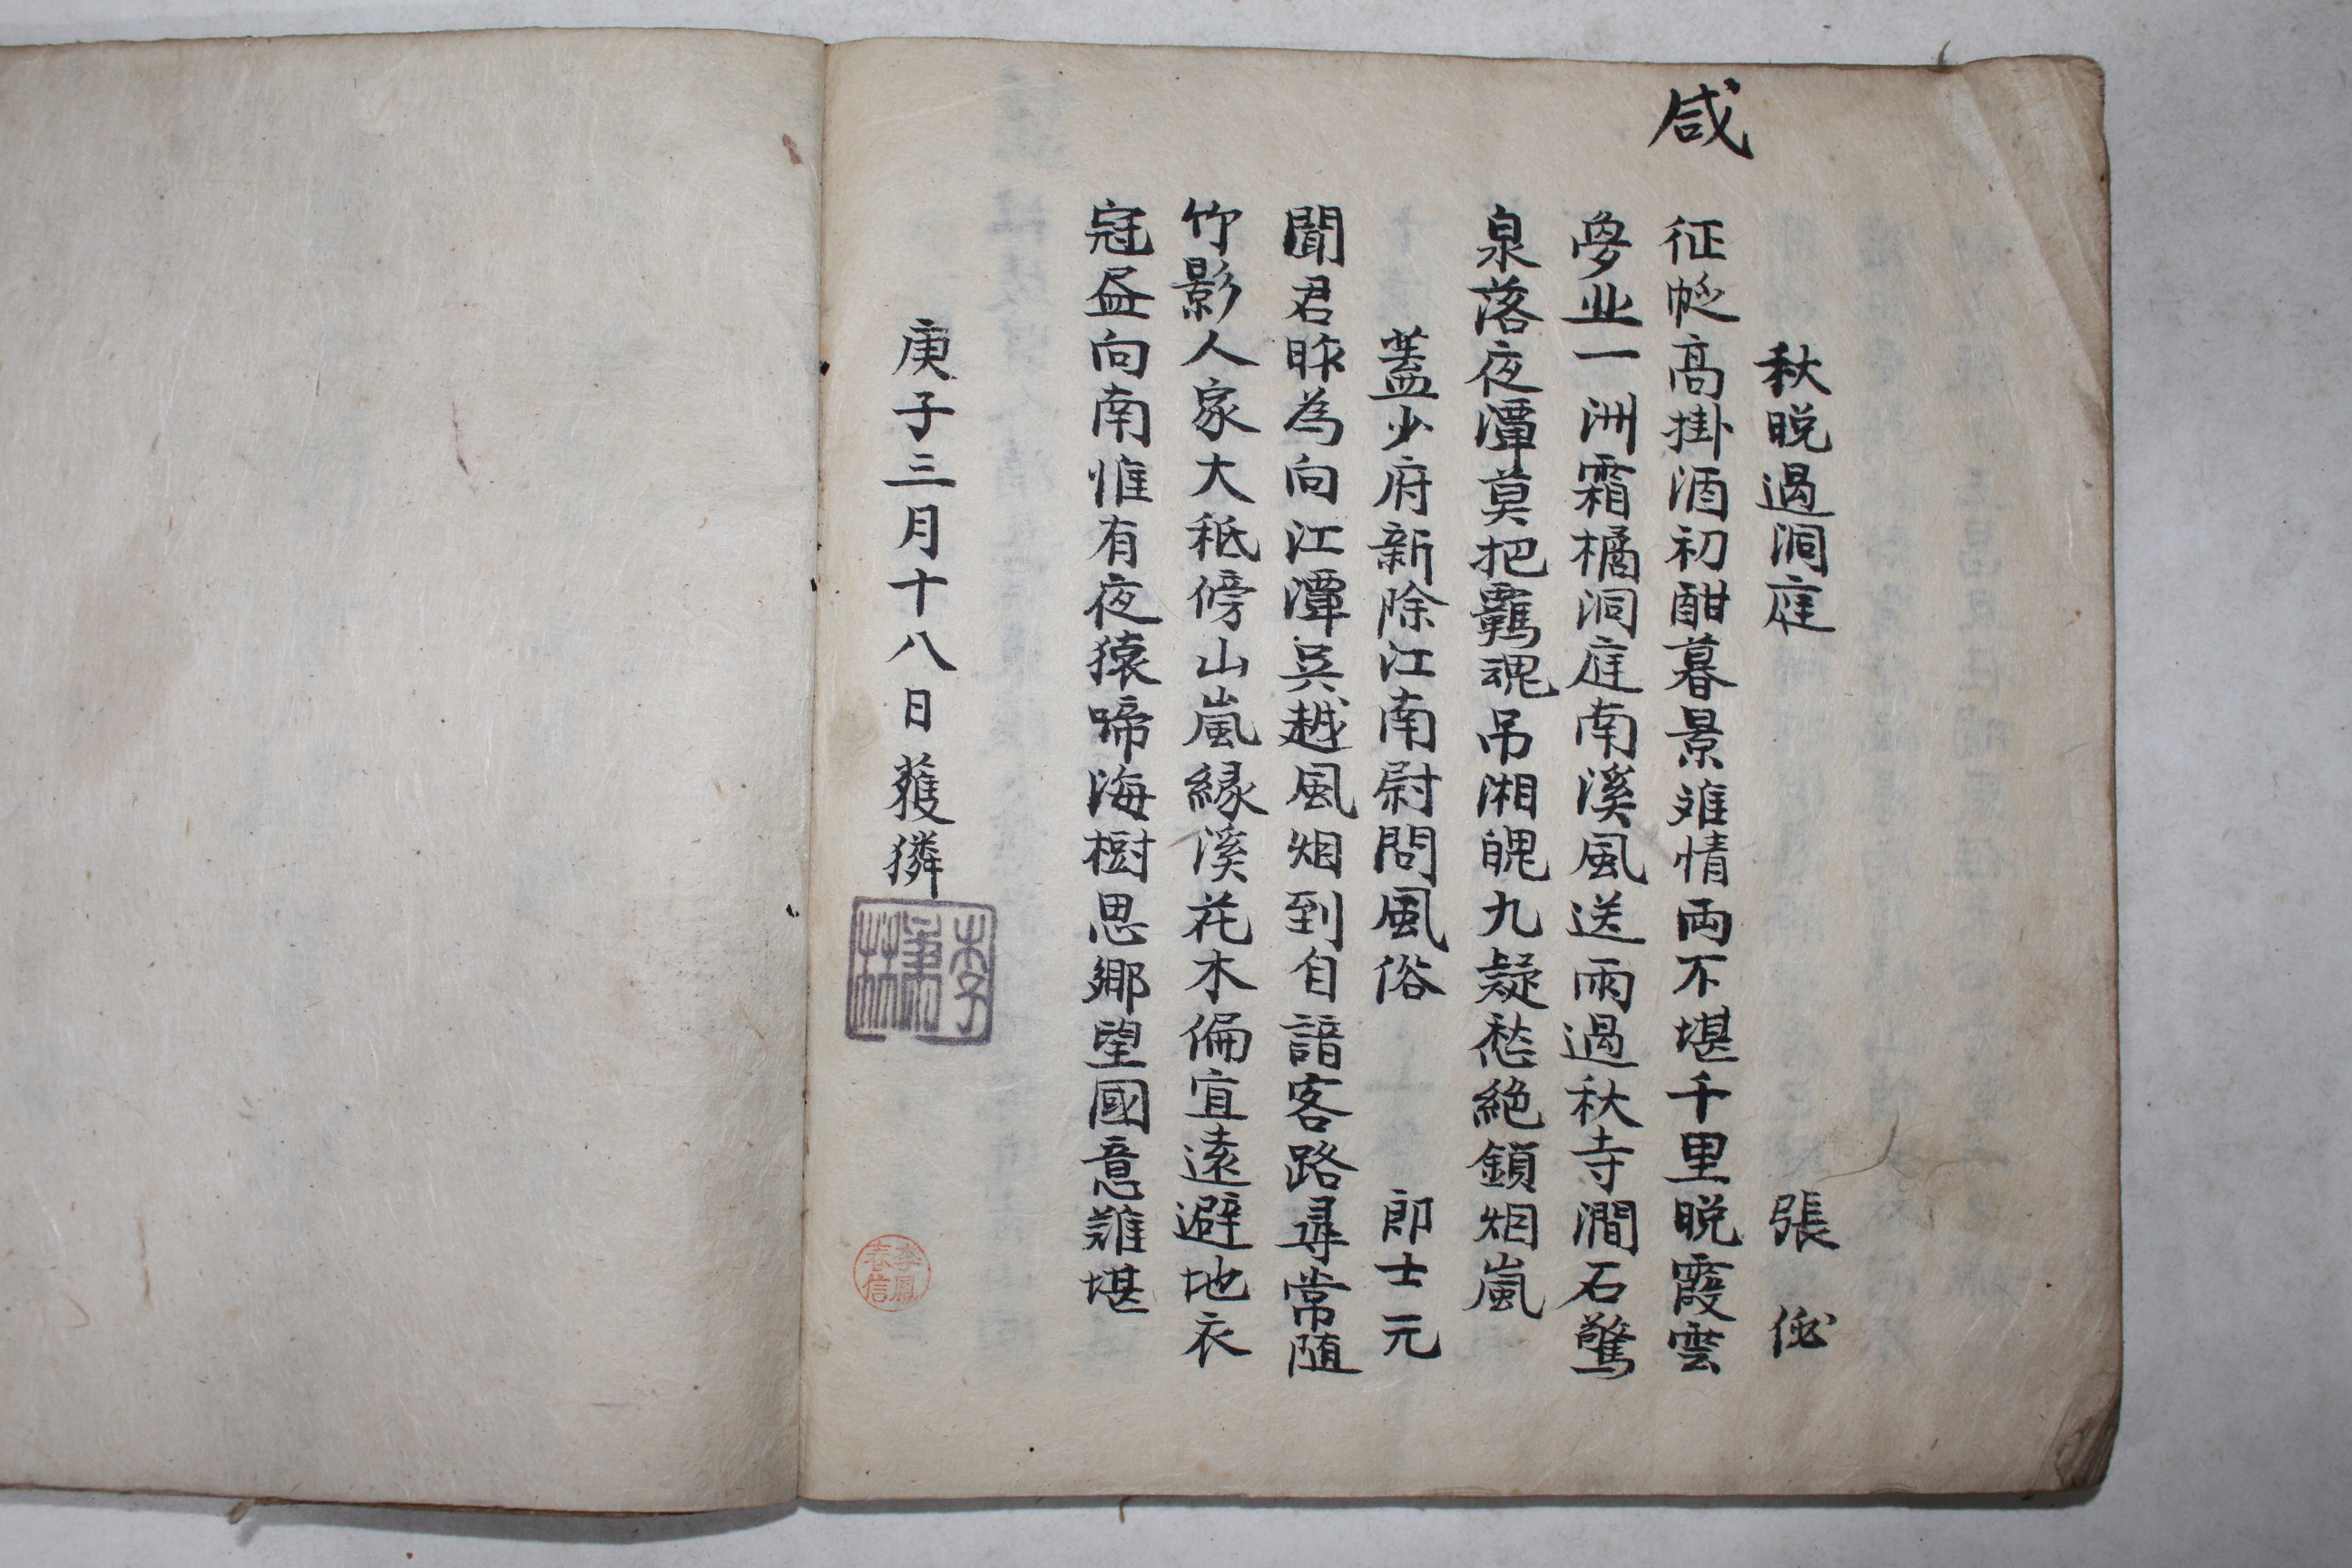 咸
秋晩過洞庭 張佖
征帆高掛酒初酣暮景难情両不堪千里晩霞雲
夢北一洲霜橘洞庭南溪風送雨過秋寺澗石驚
泉落夜潭莫把羈魂吊湘魄九疑愁絶鎖烟嵐
蓋少府新除江南尉問風俗 郎士元
聞君昨為向江潭吳越風烟到自諳客路尋常随
竹影人家大秪傍山嵐縁溪花木偏宜遠避地衣
冠盡向南惟有夜猿啼海樹思鄉望國意難堪
庚子三月十八日蒦獜
李秉林
李鳳春信